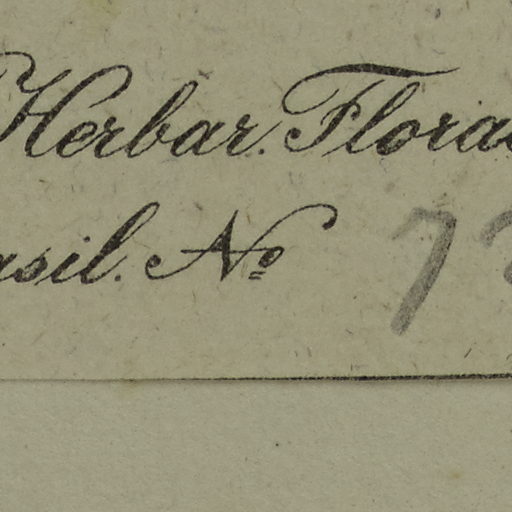 Herbar. Florae
asil. Nº 7